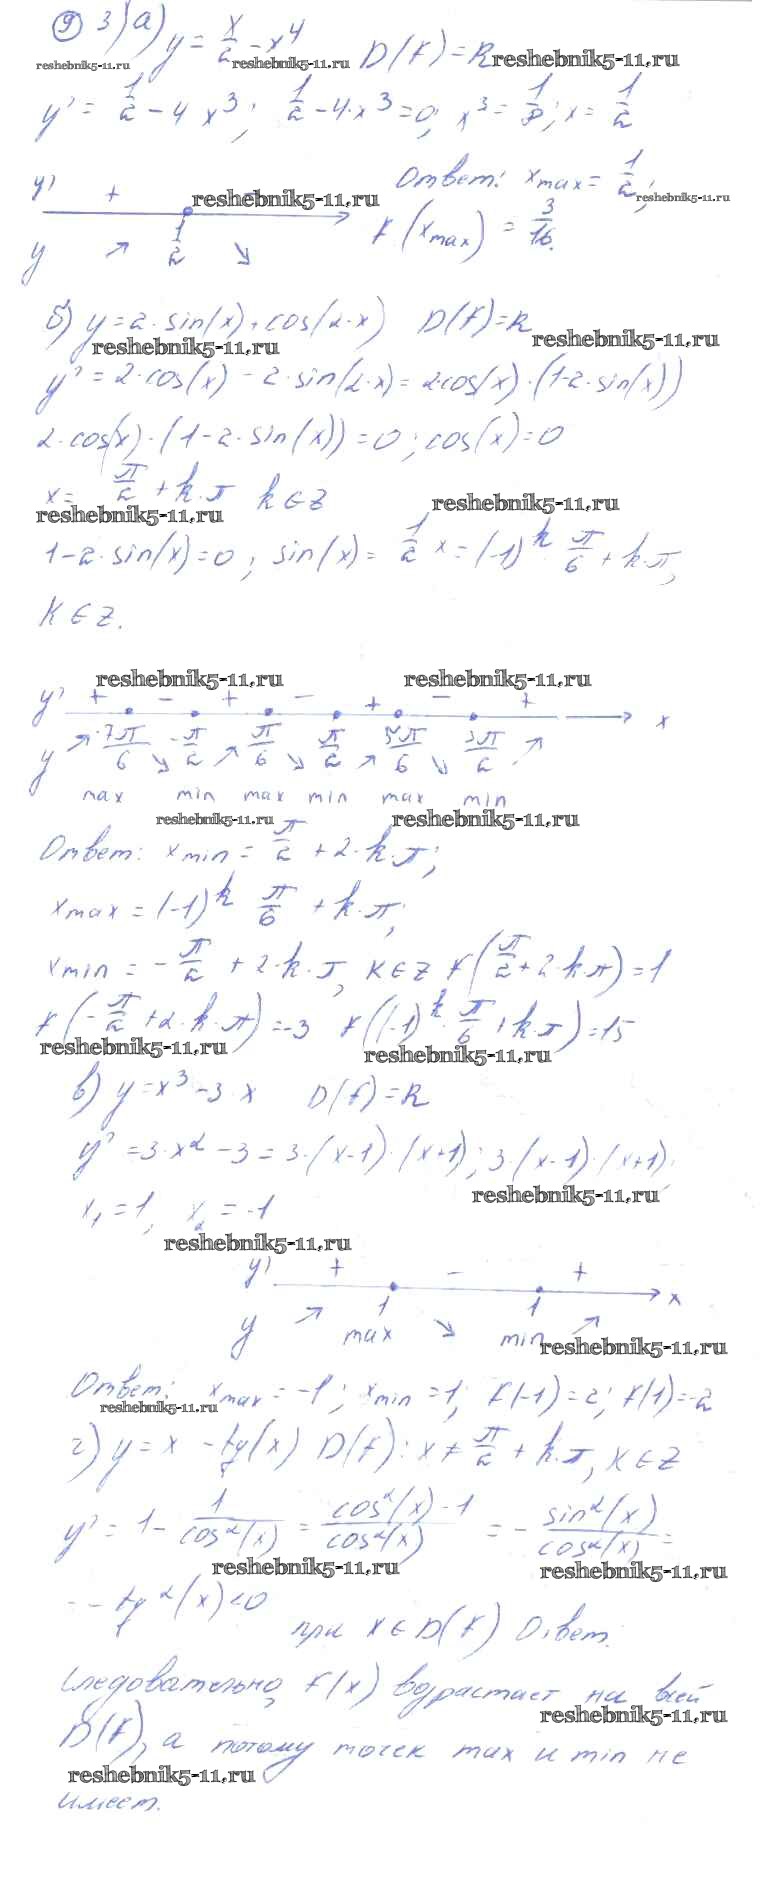 ⑨ 3) а) y = x/2 − x⁴ D(f) = R
reshebnik5-11.ru reshebnik5-11.ru reshebnik5-11.ru
y' = 1/2 − 4 x³; 1/2 − 4·x³ = 0; x³ = 1/8; x = 1/2
Ответ: x max = 1/2;
y' + − reshebnik5-11.ru reshebnik5-11.ru
1/2 f(x max) = 3/16.
y ↗ ↘
б) y = 2·sin(x) + cos(2·x) D(f) = R
reshebnik5-11.ru reshebnik5-11.ru
y' = 2·cos(x) − 2·sin(2·x) = 2cos(x)·(1−2·sin(x))
2·cos(x)·(1−2·sin(x)) = 0; cos(x) = 0
x = π/2 + k·π k∈Z
reshebnik5-11.ru reshebnik5-11.ru
1−2·sin(x) = 0; sin(x) = 1/2 x = (−1)^k π/6 + k·π,
K∈Z.
reshebnik5-11.ru reshebnik5-11.ru
y' + − + − + − +
-7π/6 -π/2 π/6 π/2 5π/6 3π/2 x
y ↗ ↘ ↗ ↘ ↗ ↘ ↗
max min max min max min
reshebnik5-11.ru reshebnik5-11.ru
Ответ: x min = π/2 + 2·k·π;
x max = (−1)^k π/6 + k·π;
x min = −π/2 + 2·k·π, K∈Z f(π/2 + 2·k·π) = 1
f(−π/2 + 2·k·π) = −3 f((−1)^k·π/6 + k·π) = 15
reshebnik5-11.ru reshebnik5-11.ru
в) y = x³ − 3·x D(f) = R
y' = 3·x² − 3 = 3·(x−1)·(x+1); 3·(x−1)·(x+1);
reshebnik5-11.ru
x₁ = 1, x₂ = −1
reshebnik5-11.ru
y' + − +
1 1 x
y ↗ max ↘ min ↗
reshebnik5-11.ru
Ответ: x max = −1; x min = 1; f(−1) = 2; f(1) = −2
reshebnik5-11.ru
г) y = x − tg(x) D(f): x ≠ π/2 + k·π, K∈Z
y' = 1 − 1/cos²(x) = cos²(x)−1/cos²(x) = − sin²(x)/cos²(x) =
reshebnik5-11.ru reshebnik5-11.ru
= − tg²(x) < 0
при x∈D(f) Ответ:
Следовательно, f(x) возрастает на всей
reshebnik5-11.ru
D(f), а потому точек max и min не
reshebnik5-11.ru
имеет.